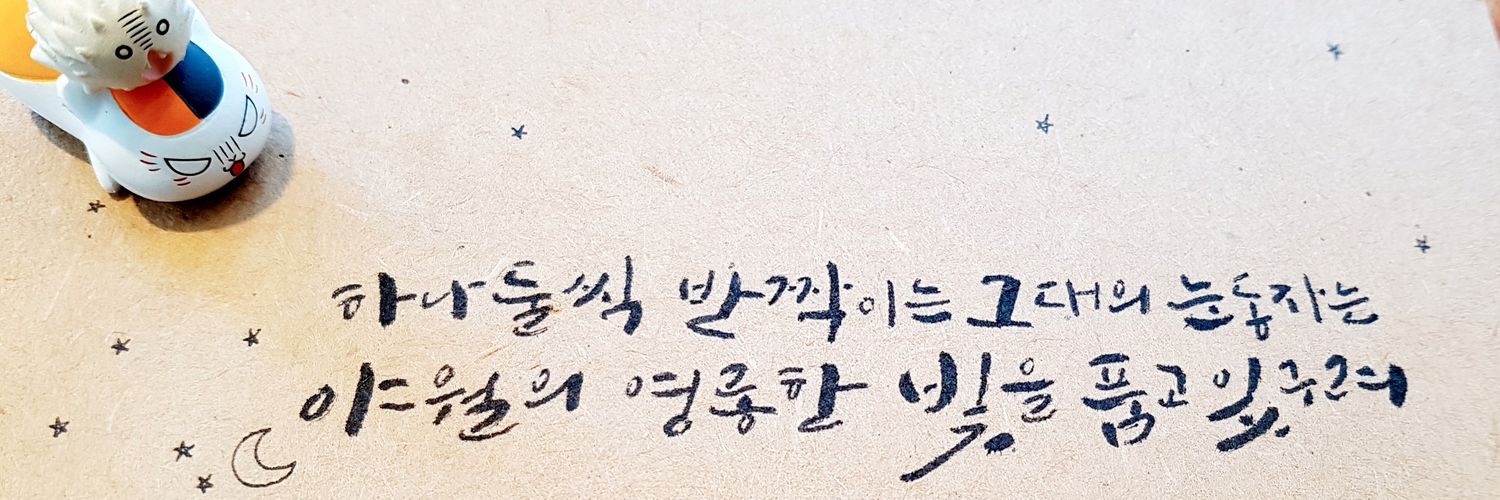 하나 둘씩 반짝이는 그대의 눈동자는
야월의 영롱한 빛을 품고 있구려